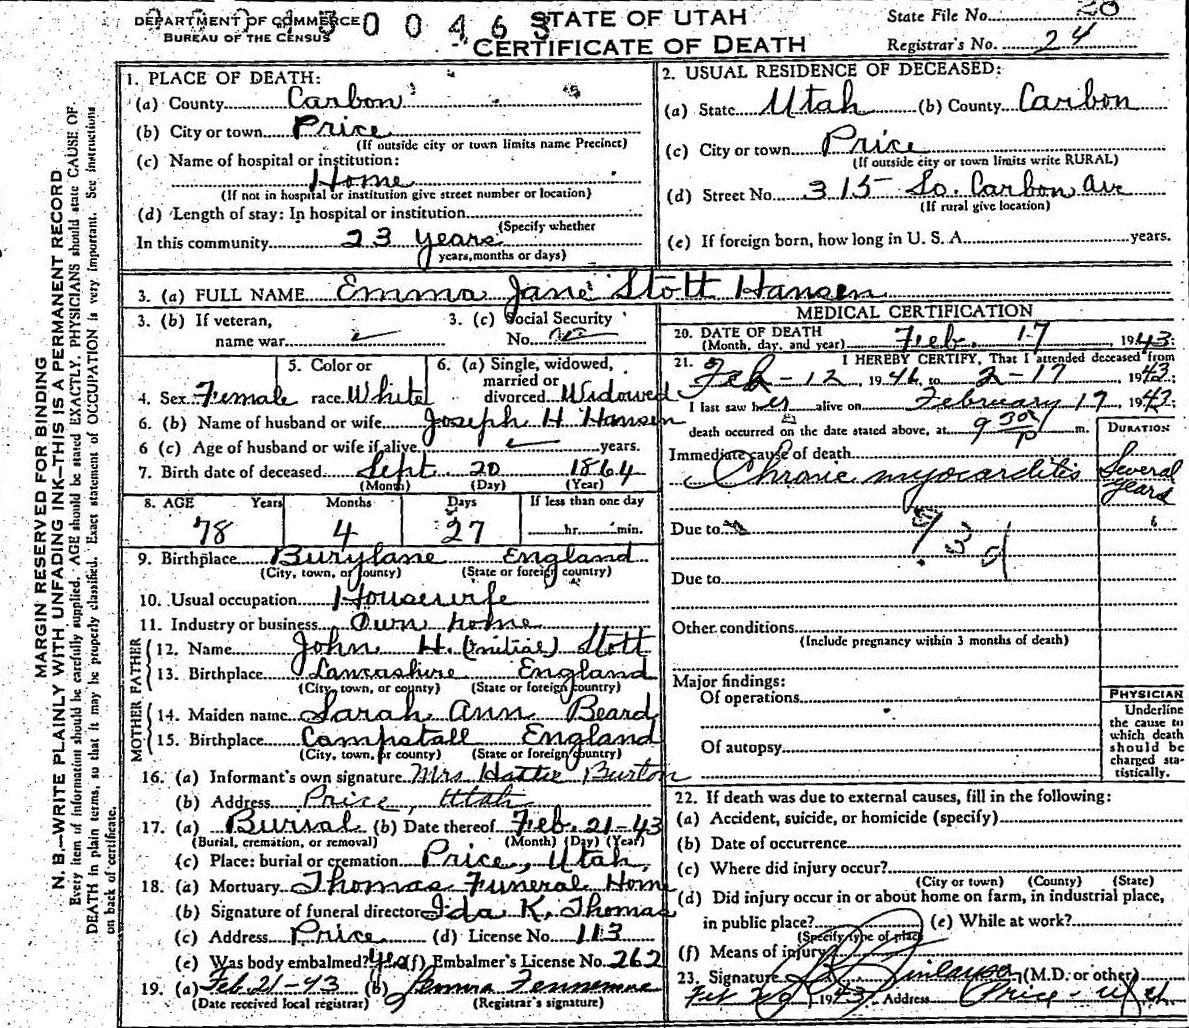 DEPARTMENT OF COMMERCE
BUREAU OF THE CENSUS
0 0 4 6 3
STATE OF UTAH
CERTIFICATE OF DEATH
State File No. 20
Registrar's No. 24
MARGIN RESERVED FOR BINDING
N. B.—WRITE PLAINLY WITH UNFADING INK—THIS IS A PERMANENT RECORD
Every item of information should be carefully supplied. AGE should be stated EXACTLY. PHYSICIANS should state CAUSE OF
DEATH in plain terms, so that it may be properly classified. Exact statement of OCCUPATION is very important. See instructions
on back of certificate.
1. PLACE OF DEATH:
(a) County Carbon
(b) City or town Price
(If outside city or town limits name Precinct)
(c) Name of hospital or institution:
Home
(If not in hospital or institution give street number or location)
(d) Length of stay: In hospital or institution
(Specify whether
In this community 23 years
years, months or days)
2. USUAL RESIDENCE OF DECEASED:
(a) State Utah (b) County Carbon
(c) City or town Price
(If outside city or town limits write RURAL)
(d) Street No. 315 So. Carbon Ave
(If rural give location)
(e) If foreign born, how long in U. S. A. years.
3. (a) FULL NAME Emma Jane Stott Hansen
3. (b) If veteran,
name war
3. (c) Social Security
No. no
4. Sex Female
5. Color or
race White
6. (a) Single, widowed,
married or
divorced Widowed
6. (b) Name of husband or wife Joseph H Hansen
6 (c) Age of husband or wife if alive years.
7. Birth date of deceased Sept 20 1864
(Month) (Day) (Year)
8. AGE Years Months Days If less than one day
78 4 27 hr. min.
9. Birthplace Burylane England
(City, town, or county) (State or foreign country)
10. Usual occupation Housewife
11. Industry or business Own home
MOTHER FATHER
12. Name John H. (initial) Stott
13. Birthplace Lancashire England
(City, town, or county) (State or foreign country)
14. Maiden name Sarah Ann Beard
15. Birthplace Compstall England
(City, town, or county) (State or foreign country)
16. (a) Informant's own signature Mrs Hattie Burton
(b) Address Price, Utah
17. (a) Burial (b) Date thereof Feb. 21-43
(Burial, cremation, or removal) (Month) (Day) (Year)
(c) Place: burial or cremation Price, Utah,
18. (a) Mortuary Thomas Funeral Home
(b) Signature of funeral director Ida K. Thomas
(c) Address Price (d) License No. 113
(e) Was body embalmed? Yes (f) Embalmer's License No. 262
19. (a) Feb 21-43 (b)
(Date received local registrar) (Registrar's signature)
MEDICAL CERTIFICATION
20. DATE OF DEATH Feb. 17 1943
(Month, day, and year)
21. I HEREBY CERTIFY, That I attended deceased from
Feb - 12, 19 to 2-17 1943
I last saw her alive on February 17, 1943
death occurred on the date stated above, at 9 30/P m.
DURATION
Immediate cause of death
Chronic myocarditis Several
years
Due to
93d
Due to
Other conditions
(Include pregnancy within 3 months of death)
Major findings:
Of operations
Of autopsy
PHYSICIAN
Underline
the cause to
which death
should be
charged sta-
tistically.
22. If death was due to external causes, fill in the following:
(a) Accident, suicide, or homicide (specify)
(b) Date of occurrence
(c) Where did injury occur?
(City or town) (County) (State)
(d) Did injury occur in or about home on farm, in industrial place,
in public place? (e) While at work?
(Specify type of place)
(f) Means of injury
23. Signature (M.D. or other)
1943 Address Price - Utah